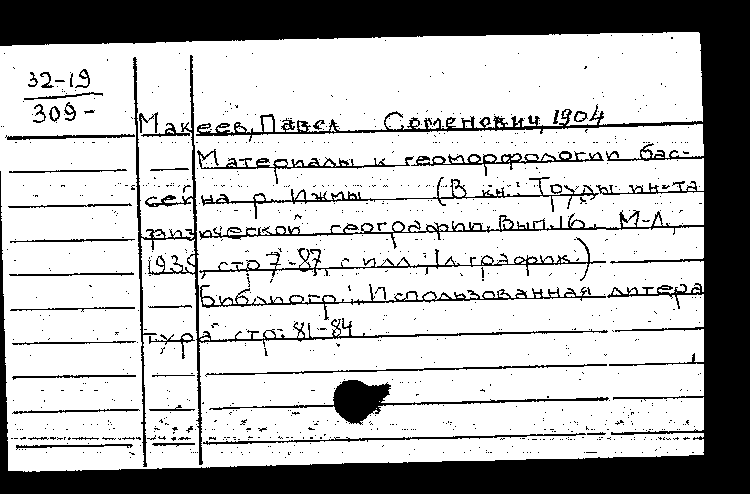 32-19
309-
Макеев, Павел Семенович, 1904
Материалы к геоморфологии бас-
сейна р. Ижмы. (В кн.: Труды ин-та
физической географии. Вып. 16. М-Л.,
стр 7-87, с илл., 1 л. график.)
Библиогр.: "Использованная литера
тура" стр. 81-84.